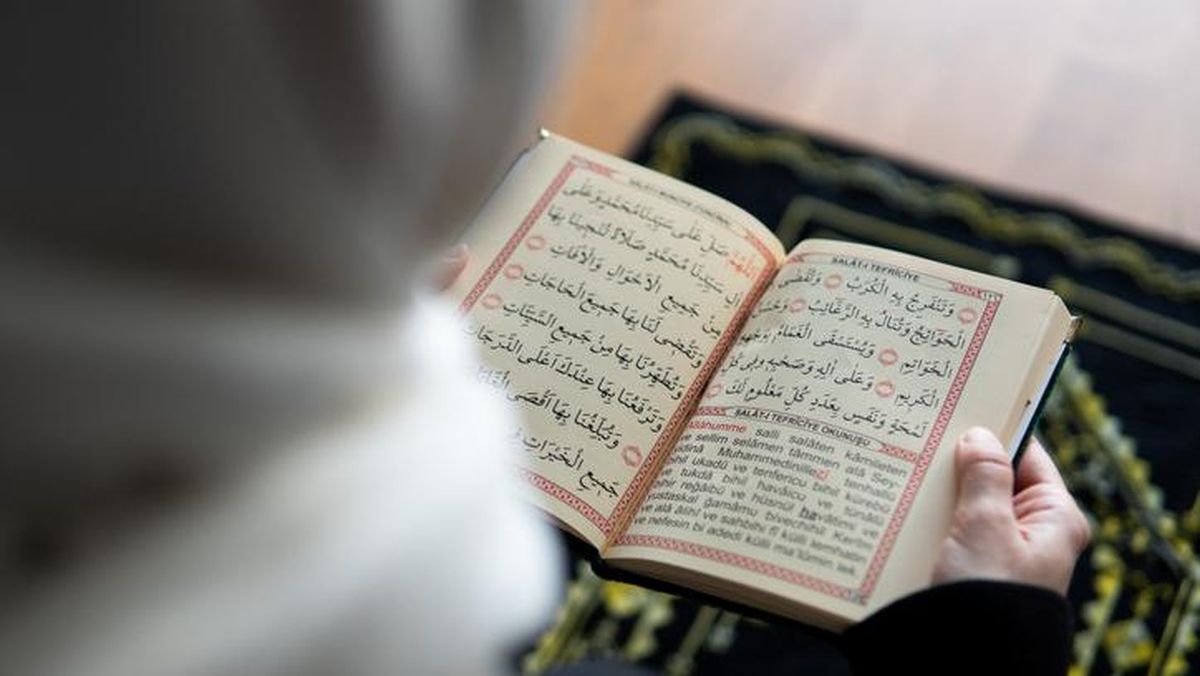 SALÂT-I TEFRİCİYE
وَتَنْفَرِجُ بِهِ الْكُرَبُ وَتُقْضَى
الْحَوَائِجُ وَتُنَالُ بِهِ الرَّغَائِبُ وَحُسْنُ
الْخَوَاتِمِ وَيُسْتَسْقَى الْغَمَامُ بِوَجْهِهِ
الْكَرِيمِ وَعَلَى آلِهِ وَصَحْبِهِ فِى كُلِّ
لَمْحَةٍ وَنَفَسٍ بِعَدَدِ كُلِّ مَعْلُومٍ لَكَ
SALÂT-I TEFRİCİYE OKUNUŞU
salli salâten kâmileten
ve sellim selâmen tâmmen alâ Sey-
Muhammedinillezi tenhallü
bihil ukadü ve tenfericu bihil kürebü
ve tukdâ bihil havâicu ve tünâlü
reğâibü ve hüsnül havâtimi ve
yustaskal ğamâmu bivechihil Kerim
ve alâ âlihi ve sahbihi fî külli lemhatin
ve nefesin bi adedi külli ma'lûmin lek
اَللّٰهُمَّ صَلِّ عَلَى سَيِّدِنَا مُحَمَّدٍ وَعَلَى
اٰلِ سَيِّدِنَا مُحَمَّدٍ صَلَاةً تُنْجِينَا بِهَا
مِنْ جَمِيعِ الْاَحْوَالِ وَالْاٰفَاتِ
وَتَقْضِى لَنَا بِهَا جَمِيعَ الْحَاجَاتِ
وَتُطَهِّرُنَا بِهَا مِنْ جَمِيعِ السَّيِّئَاتِ
وَتَرْفَعُنَا بِهَا عِنْدَكَ اَعْلَى الدَّرَجَاتِ
وَتُبَلِّغُنَا بِهَا اَقْصَى
جَمِيعِ الْخَيْرَاتِ